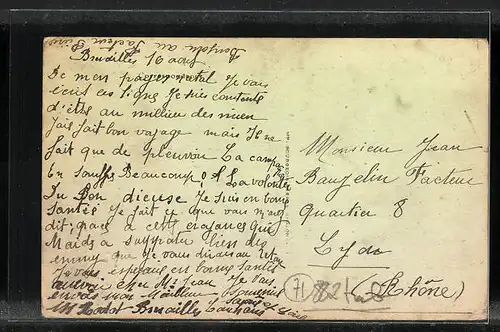 Bonjour au Facteur
Bruailles 16 aout
De mon pays natal Je vous
écris ces ligne Je suis contente
d'être au millieu des mien
Jais fait bon voyage mais Il ne
fait que de pleuvoir La campa
En souffre Beaucoup A la volonter
Du Bon dieuse Je suis en bonne
santé Je fait ce que vous m'aves
dit, grace a cette
Maids a supporter bien des
ennuy que Je vous dirais au retour
Je vous espérant en bonne santé
au revoir Mr Jean Je vais
envois mon Meilleur Souvenir
Bruailles Louhans
Monsieur Jean
Baujelin Facteur
Quartier 8
Lyon
(Rhône)